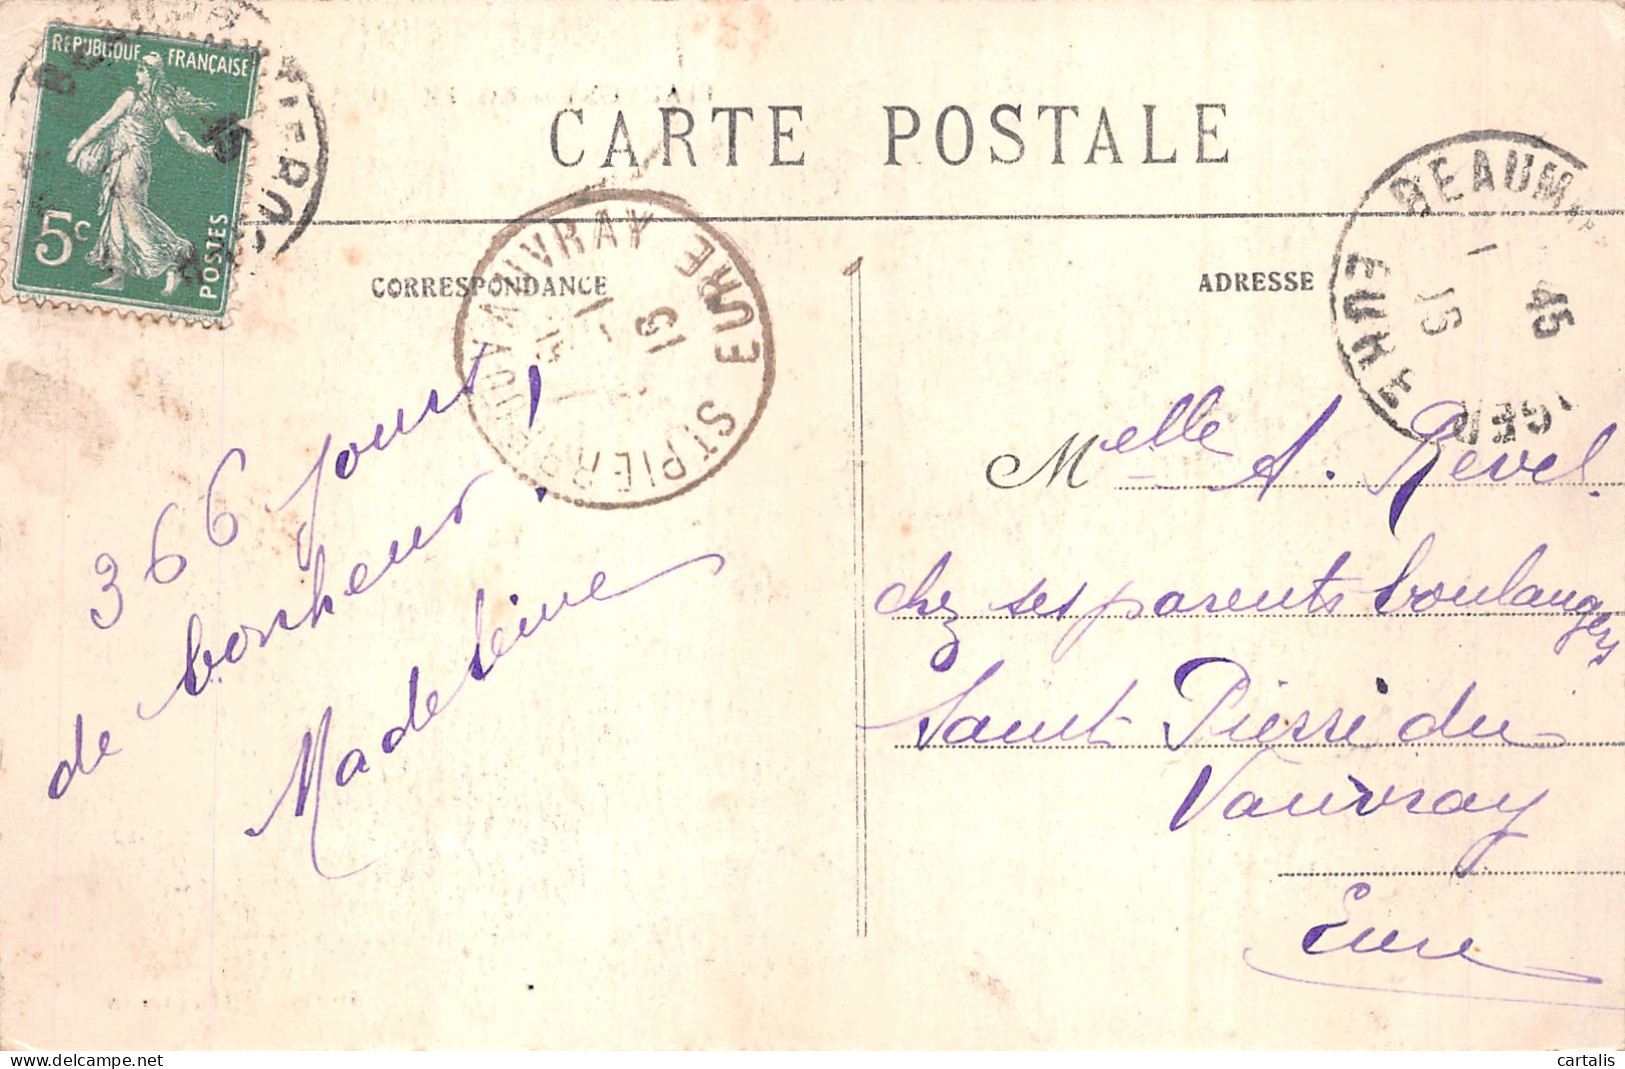 REPUBLIQUE FRANÇAISE
5c
POSTES
CARTE POSTALE
CORRESPONDANCE
ADRESSE
ST PIERRE DU VAUVRAY EURE
BEAUM
EURE
45
366 jours
de bonheur !
Madeleine
Melle A. Revel
chez ses parents boulangers
Saint Pierre du
Vauvray
Eure
cartalis